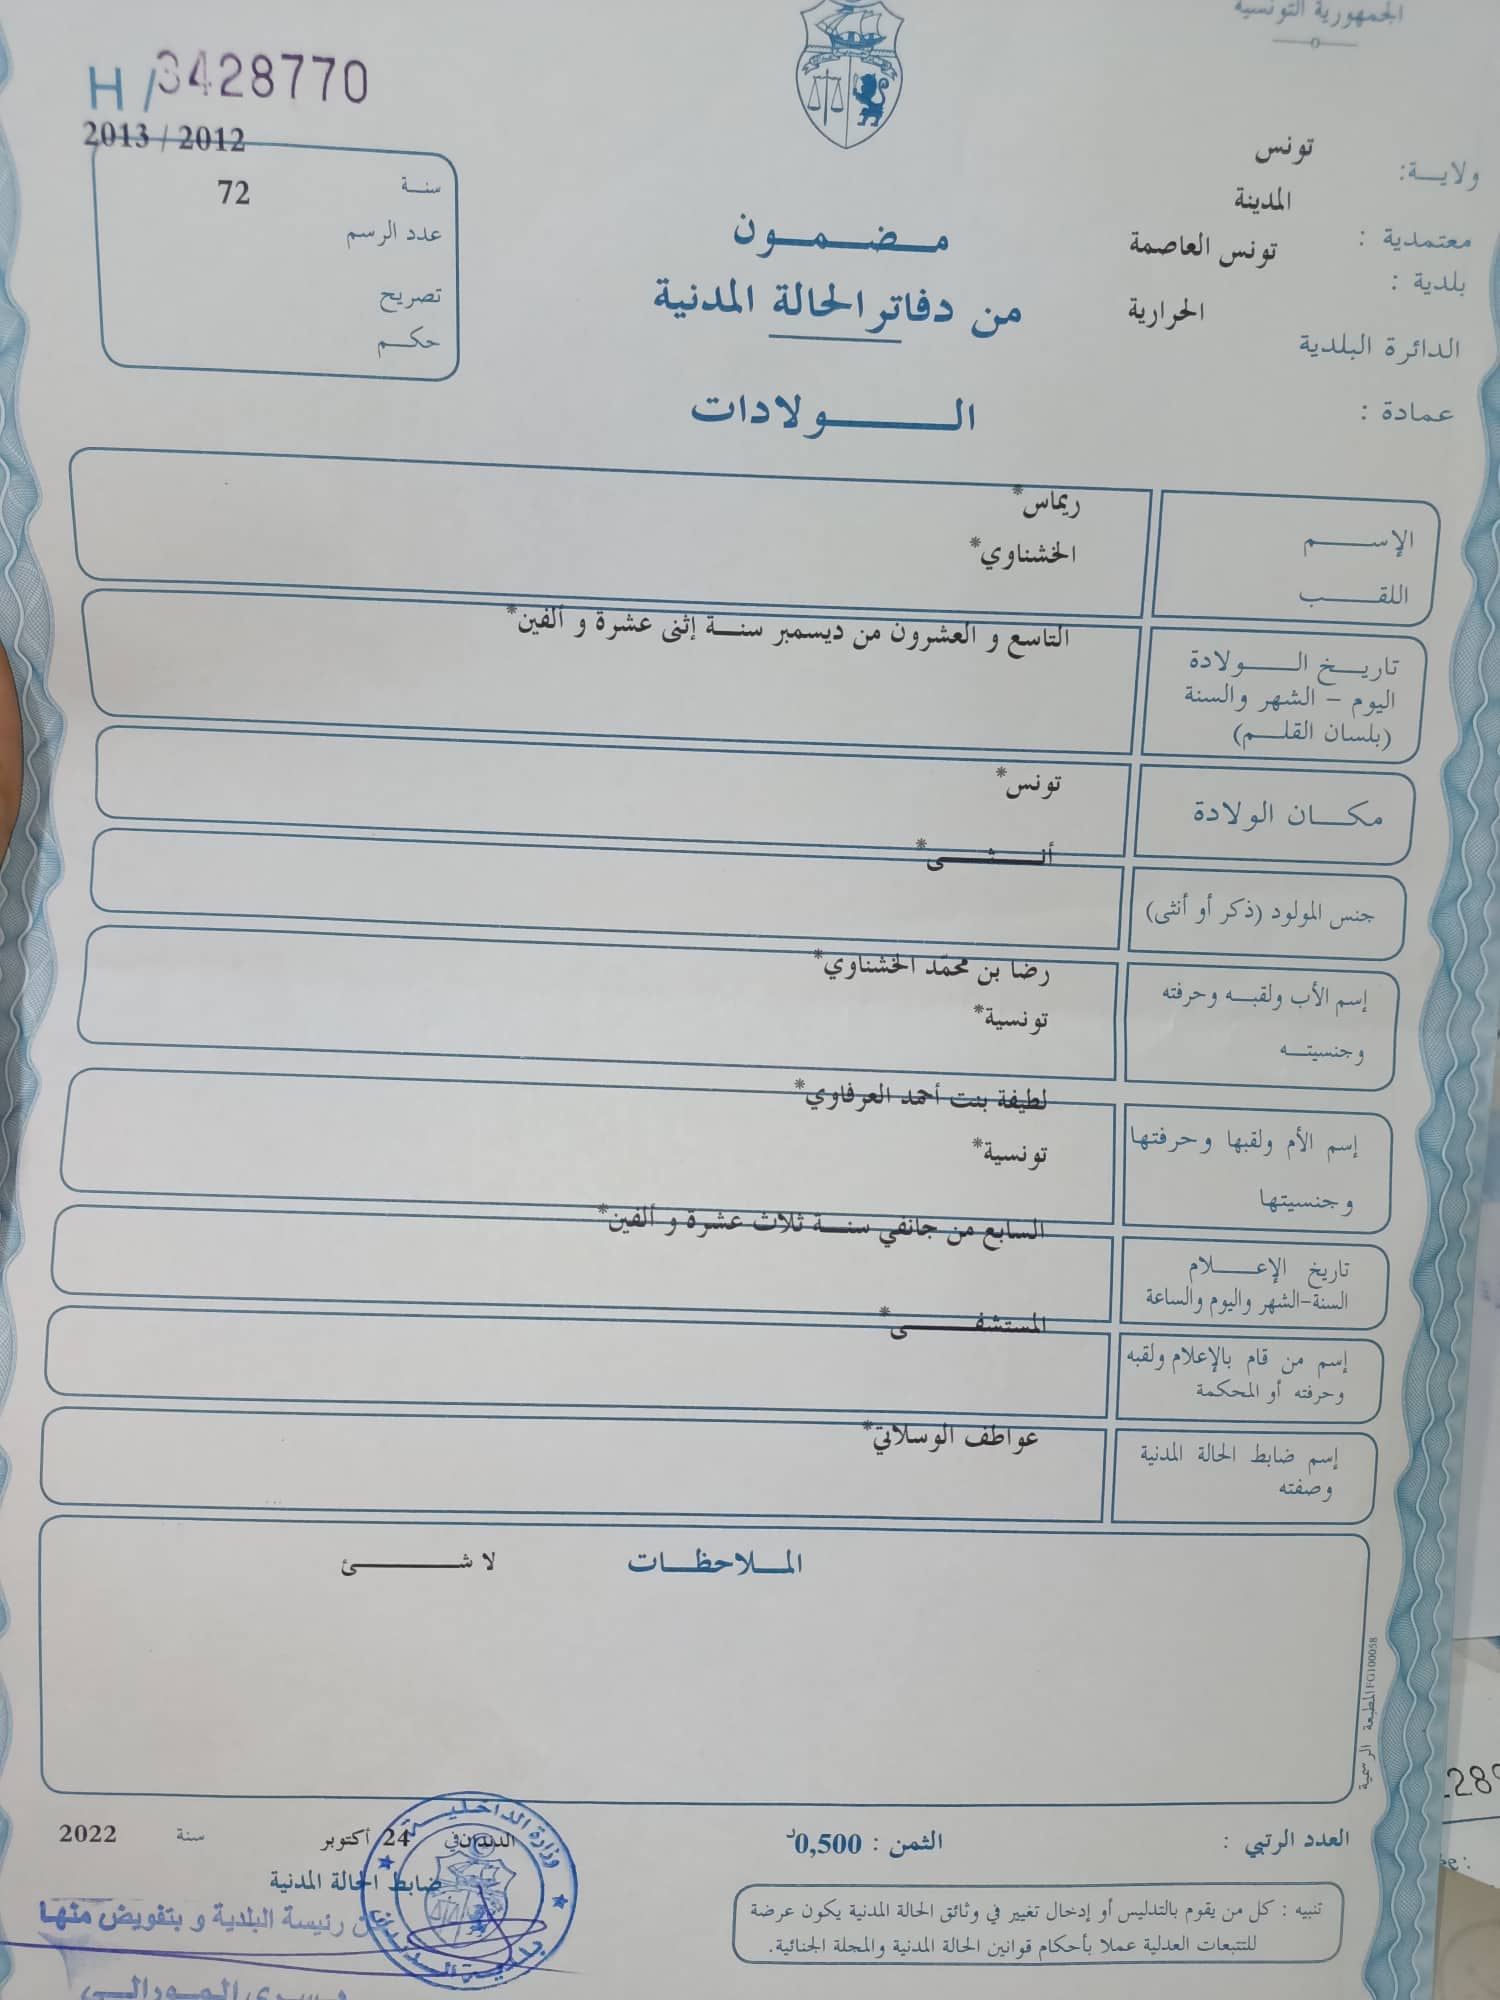 الجمهورية التونسية
H / 3428770
2013 / 2012
سنة 72
عدد الرسم
تصريح
حكم
ولاية: تونس
معتمدية : المدينة
بلدية : تونس العاصمة
الدائرة البلدية الحرارية
عمادة :
مضمون
من دفاتر الحالة المدنية
الولادات
الإسم ريماس*
اللقب الخشناوي*
تاريخ الولادة التاسع و العشرون من ديسمبر سنة إثنى عشرة و ألفين*
اليوم - الشهر والسنة
(بلسان القلم)
مكان الولادة تونس*
جنس المولود (ذكر أو أنثى) أنثى*
إسم الأب ولقبه وحرفته رضا بن محمّد الخشناوي*
وجنسيته تونسية*
إسم الأم ولقبها وحرفتها لطيفة بنت أحمد العرفاوي*
وجنسيتها تونسية*
تاريخ الإعلام السابع من جانفي سنة ثلاث عشرة و ألفين*
السنة-الشهر واليوم والساعة
إسم من قام بالإعلام ولقبه المستشفى*
وحرفته أو المحكمة
إسم ضابط الحالة المدنية عواطف الوسلاتي*
وصفته
الملاحظات لا شئ
المطبعة الرسمية FG100058
العدد الرتبي :
الثمن : 0,500د
الدندان في 24 أكتوبر سنة 2022
ضابط الحالة المدنية
عن رئيسة البلدية و بتفويض منها
وزارة الداخلية
بلدية الدندان
تنبيه : كل من يقوم بالتدليس أو إدخال تغيير في وثائق الحالة المدنية يكون عرضة
للتتبعات العدلية عملا بأحكام قوانين الحالة المدنية والمجلة الجنائية.